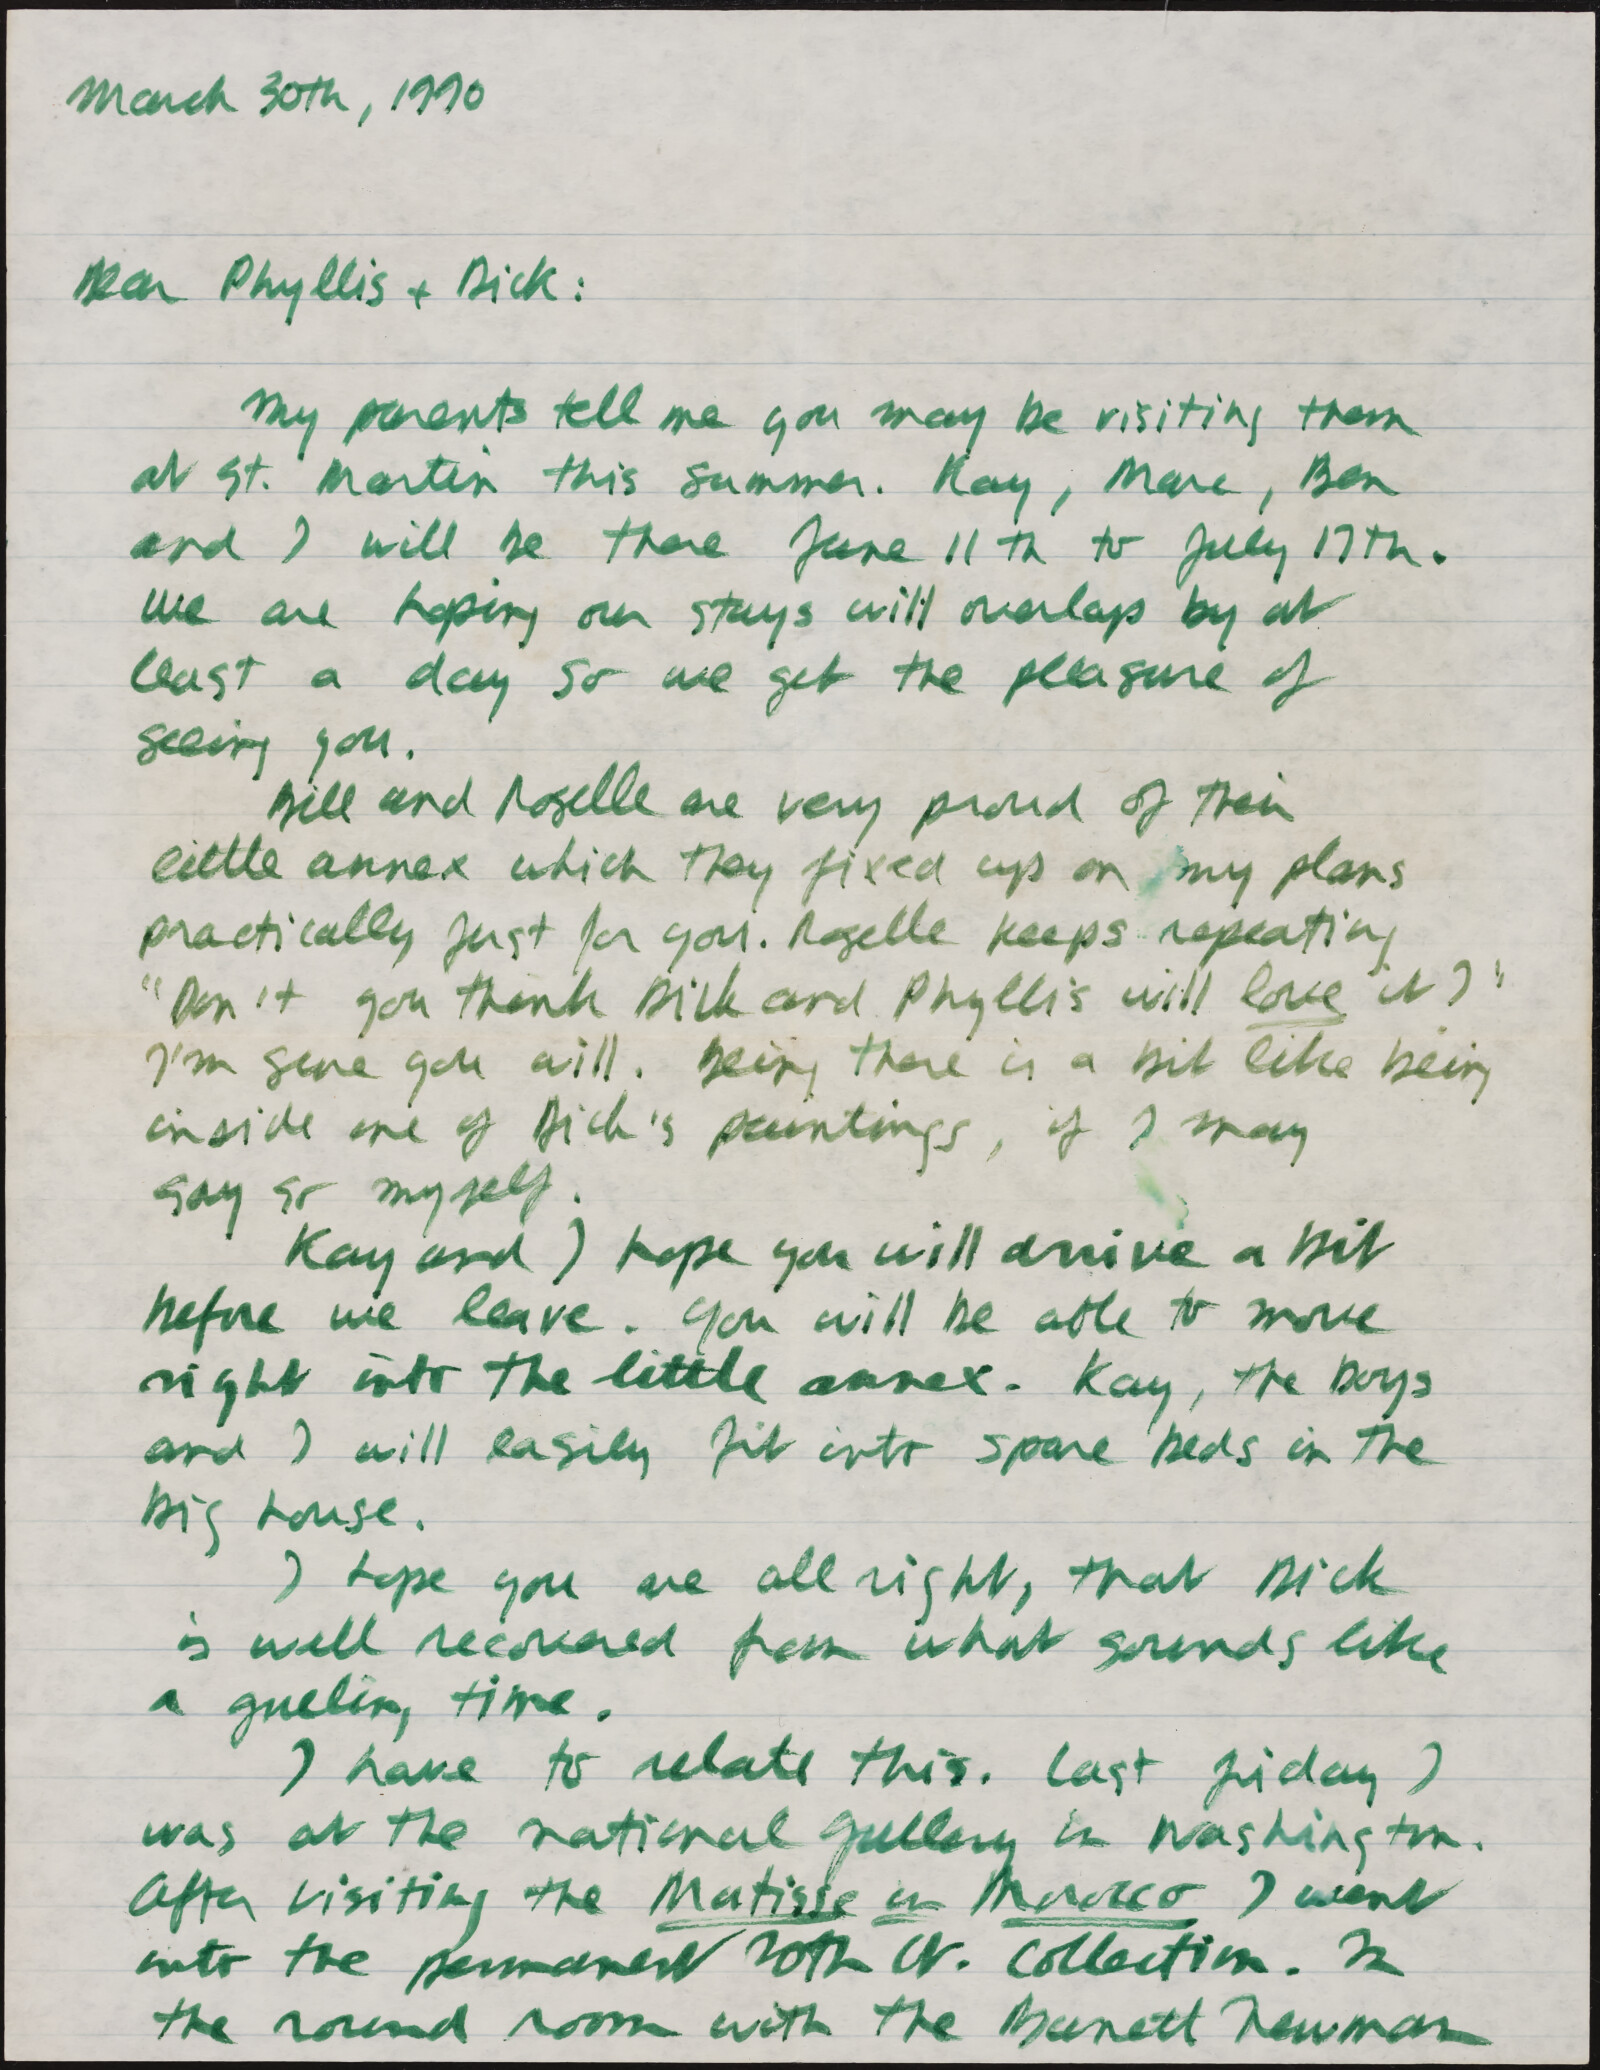 March 30th, 1990
Dear Phyllis + Dick:
My parents tell me you may be visiting them
at St. Martin this summer. Kay, Marc, Ben
and I will be there June 11th to July 17th.
We are hoping our stays will overlap by at
least a day so we get the pleasure of
seeing you.
Bill and Roselle are very proud of their
little annex which they fixed up on my plans
practically just for you. Roselle keeps repeating
"Don't you think Dick and Phyllis will love it?"
I'm sure you will. Being there is a bit like being
inside one of Dick's paintings, if I may
say so myself.
Kay and I hope you will arrive a bit
before we leave. You will be able to move
right into the little annex. Kay, the boys
and I will easily fit into spare beds in the
big house.
I hope you are all right, that Dick
is well recovered from what sounds like
a grueling time.
I have to relate this. Last friday I
was at the national gallery in Washington.
After visiting the Matisse in Morocco I went
into the permanent 20th Ct. collection. In
the round room with the Barnett Newman